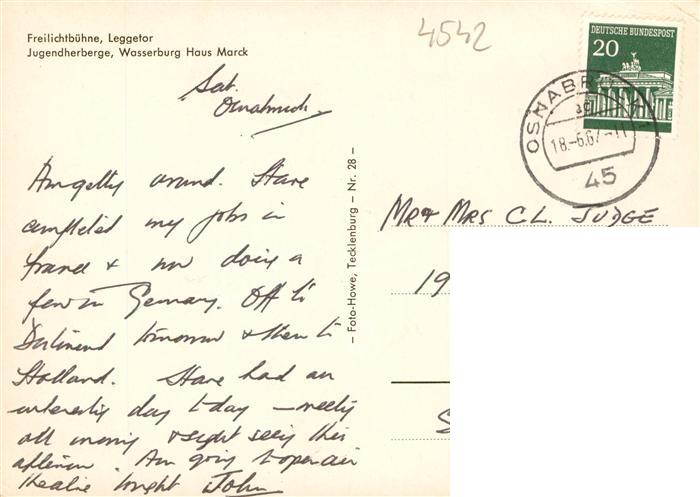 Freilichtbühne, Leggetor
Jugendherberge, Wasserburg Haus Marck
4542
DEUTSCHE BUNDESPOST
20
OSNABRÜCK
18.-6.67.-11
45
Sat.
Osnabruck.
Am getting around. Have
completed my jobs in
France & now doing a
few in Germany. Off to
Dortmund tomorrow & then to
Holland. Have had an
interesting day today – meeting
all morning & sight seeing this
afternoon. Am going to open air
theatre tonight John
– Foto-Howe, Tecklenburg – Nr. 28 –
MR & MRS C.L. JUDGE
19
S